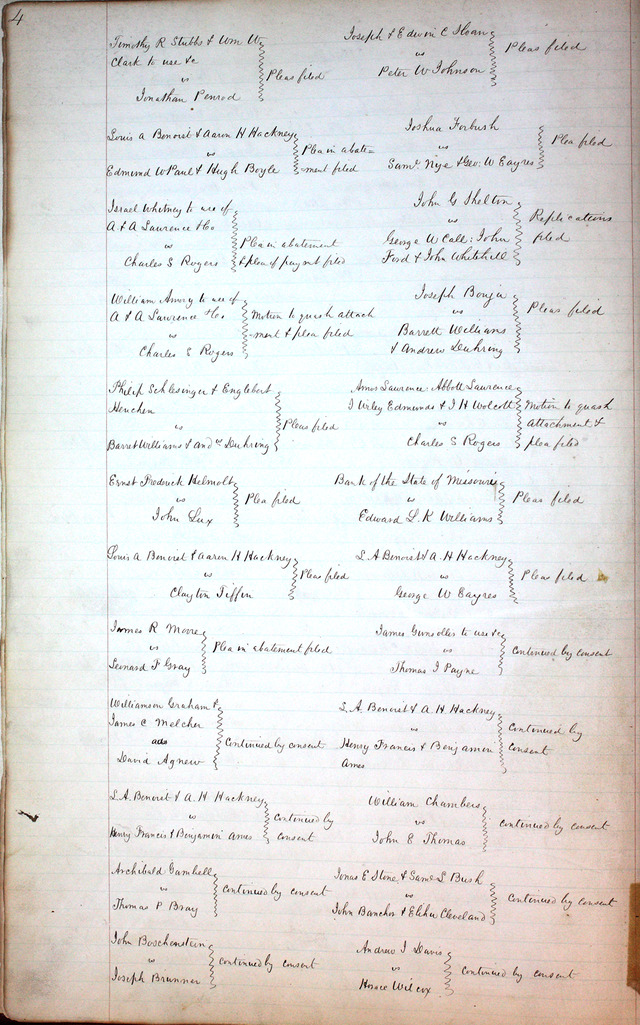 4
Timothy R Stubbs & Wm W
Clark to use &c
vs
Jonathan Penrod
Pleas filed
Joseph & Edwin C Sloan
vs
Peter W Johnson
Pleas filed
Louis A Benoist & Aaron H Hackney
vs
Edmund W Paul & Hugh Boyle
Plea in abate=
-ment filed
Joshua Forbush
vs
Saml Nye & Geo: W Eayres
Plea filed
Israel Whitney to use of
A & A Lawrence & Co
vs
Charles S Rogers
Plea in abatement
& plea of paymt filed
John G Shelton
vs
George W Call: John
Ford & John Whitehill
Replications
filed
William Amory to use of
A & A Lawrence & Co
vs
Charles S Rogers
Motion to quash attach
ment & plea filed
Joseph Bouju
vs
Barrett Williams
& Andrew Duhring
Pleas filed
Philip Schlesinger & Englebert
Henchen
vs
Barret Williams & Andw Duhring
Pleas filed
Amos Lawrence: Abbott Lawrence
J Wiley Edmunds & J H Wolcott
vs
Charles S Rogers
Motion to quash
attachment &
plea filed
Ernst Frederick Helmolt
vs
John Lux
Plea filed
Bank of the State of Missouri
vs
Edward L. R Williams
Pleas filed
Louis A Benoist & Aaron H Hackney
vs
Clayton Tiffin
Pleas filed
L. A Benoist & A. H Hackney
vs
George W Eayres
Pleas filed
James R Moore
vs
Leonard F Gray
Plea in abatement filed
James to use &c
vs
Thomas J Payne
Continued by consent
Williamson Graham &
James C Melcher
ads
David Agnew
Continued by consent
L. A. Benoist & A. H. Hackney
vs
Henry Francis & Benjamin
Ames
Continued by
consent
L. A. Benoist & A. H. Hackney
vs
Henry Francis & Benjamin Ames
Continued by
consent
William Chambers
vs
John E Thomas
Continued by consent
Archibald Gambell
vs
Thomas P Bray
Continued by consent
Jonas E Stone & Saml S Bush
vs
John Banchs & Elihu Cleveland
Continued by consent
John Boschenstein
vs
Joseph Brunner
Continued by consent
Andrew J Davis
vs
Horace Wilcox
Continued by consent